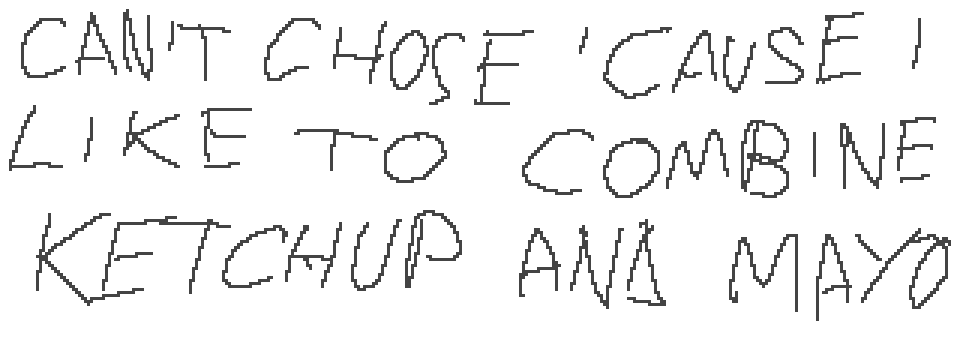 CAN'T CHOSE 'CAUSE I
LIKE TO COMBINE
KETCHUP AND MAYO